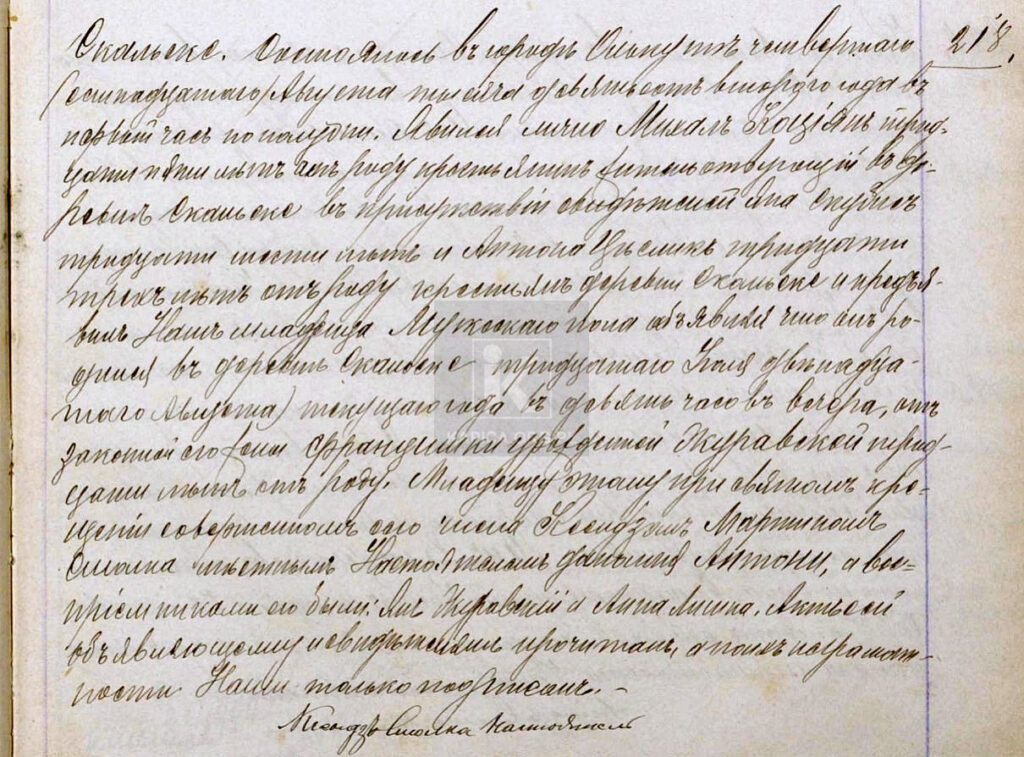 Скальске. Состоялось въ городѣ Олькушѣ четвертаго
(семнадцатаго) Августа тысяча девятьсотъ второго года въ
первый часъ по полудни. Явился лично Михалъ Коціянъ трид-
цати пяти лѣтъ отъ роду крестьянинъ жительствующій въ де-
ревнѣ Скальске въ присутствіи свидѣтелей Яна
тридцати шести лѣтъ и Антона Цесликъ тридцати
трехъ лѣтъ отъ роду крестьянъ деревни Скальске и предъя-
вилъ Намъ младенца Мужескаго пола объявляя что онъ ро-
дился въ деревнѣ Скальске тридцатаго Іюля (двѣнадца-
таго Августа) текущаго года въ девять часовъ вечера, отъ
законной его жены Францишки урожденной Журавской трид-
цати лѣтъ отъ роду. Младенцу этому при святомъ кре-
щеніи совершенномъ сего числа Ксендзомъ Мартиномъ
Смолка мѣстнымъ Настоятелемъ дано имя Антони, а вос-
пріемниками его были: Янъ Журавскій и Анна Лишка. Актъ сей
объявляющему и свидѣтелямъ прочитанъ, а по ихъ неграмот-
ности Нами только подписанъ. -
Ксендзъ Смолка Настоятель
218.